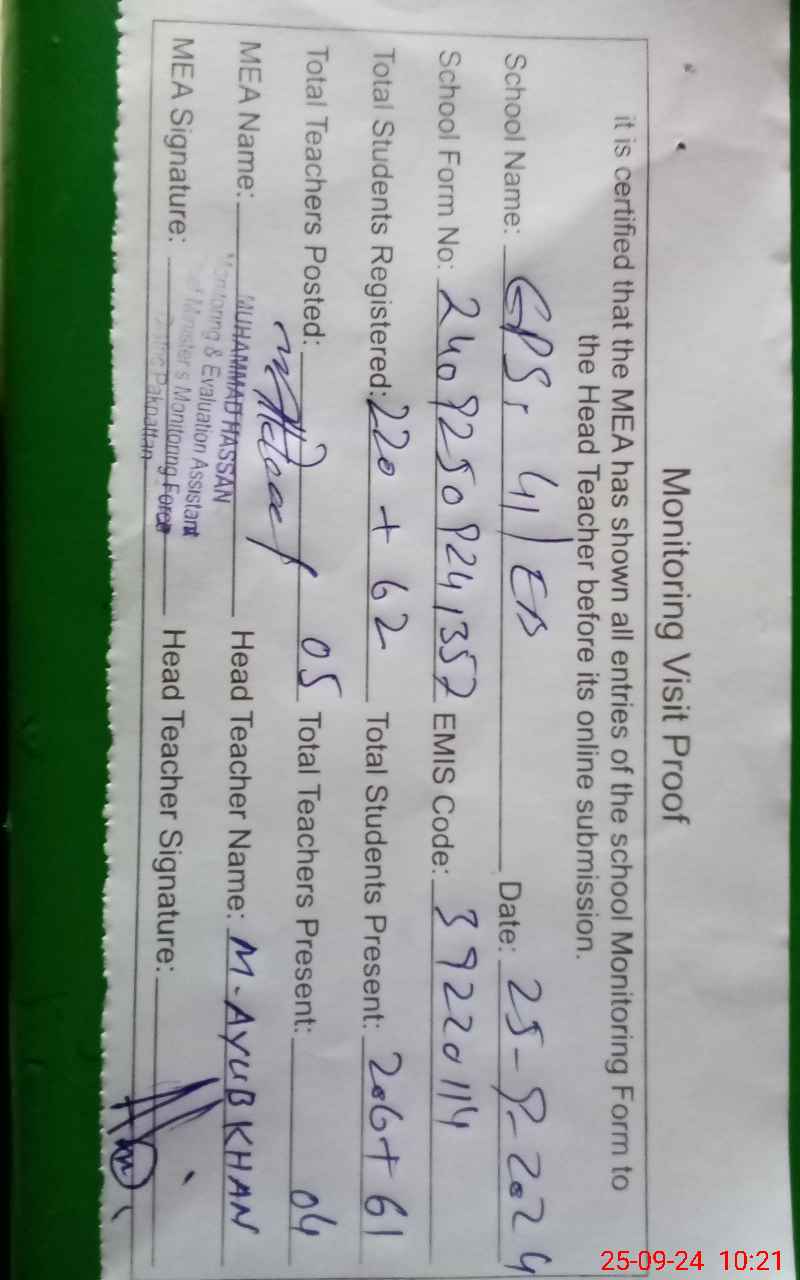 Monitoring Visit Proof
it is certified that the MEA has shown all entries of the school Monitoring Form to
the Head Teacher before its online submission.
School Name: GPS, 41/EB Date: 25-9-2024
School Form No: 2409250924,357 EMIS Code: 39220114
Total Students Registered: 220 + 62 Total Students Present: 206+61
Total Teachers Posted: 05 Total Teachers Present: 04
MEA Name: MUHAMMAD HASSAN Head Teacher Name: M-AYUB KHAN
Monitoring & Evaluation Assistant
Minister's Monitoring Force
Pakpattan
MEA Signature: Head Teacher Signature:
25-09-24 10:21